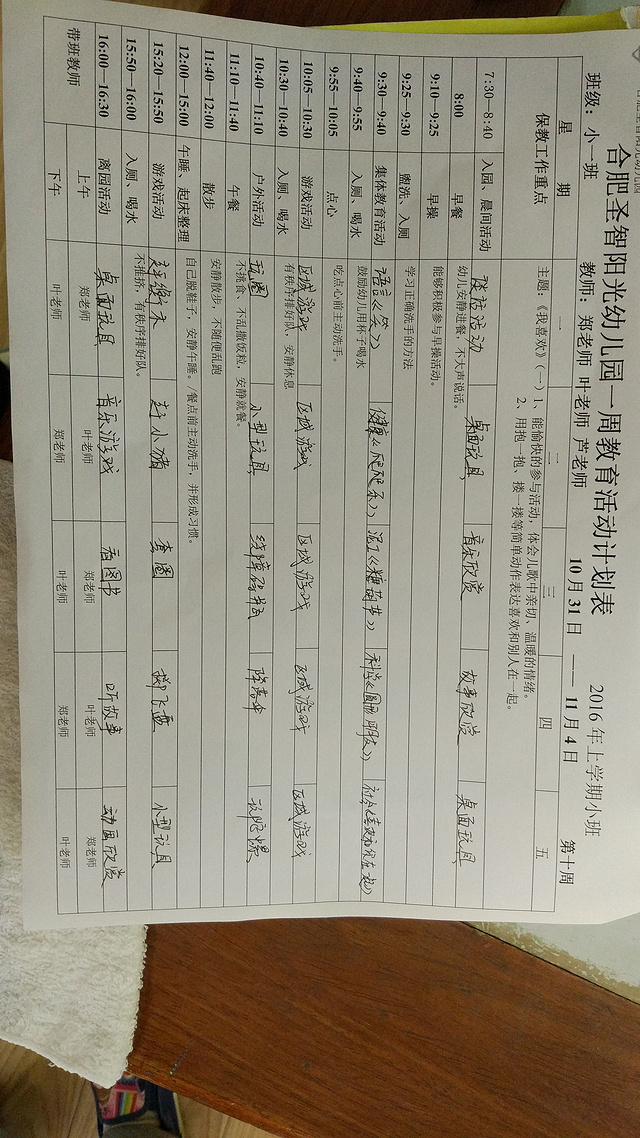 合肥圣智阳光幼儿园一周教育活动计划表
2016年上学期小班
班级：小一班 教师：郑老师 叶老师 芦老师 10月31日 —— 11月4日 第十周
星 期 一 二 三 四 五
保教工作重点 主题：《我喜欢》（一）1、能愉快的参与活动，体会儿歌中亲切、温暖的情绪。
2、用抱一抱、搂一搂等简单动作表达喜欢和别人在一起。
7:30—8:40 入园、晨间活动 谈话活动 桌面玩具 音乐欣赏 故事欣赏 桌面玩具
8:00 早餐 幼儿安静进餐，不大声说话。
9:10—9:25 早操 能够积极参与早操活动。
9:25—9:30 盥洗、入厕 学习正确洗手的方法
9:30—9:40 集体教育活动 语言《笑》 健康《爬爬乐》 《糖葫芦》 科学《圆圆朋友》
9:40—9:55 入厕、喝水 鼓励幼儿用杯子喝水
9:55—10:05 点心 吃点心前主动洗手。
10:05—10:30 游戏活动 区域游戏 区域游戏 区域游戏 区域游戏 区域游戏
10:30—10:40 入厕、喝水 有秩序排好队，安静休息
10:40—11:10 户外活动 玩圈 小型玩具 降落伞
11:10—11:40 午餐 不挑食、不乱撒饭粒，安静就餐。
11:40—12:00 散步 安静散步，不随便乱跑
12:00—15:00 午睡、起床整理 自己脱鞋子，安静午睡。/餐点前主动洗手，并形成习惯。
15:20—15:50 游戏活动 走平衡木 赶小猪 套圈 小型玩具
15:50—16:00 入厕、喝水 不推挤，有秩序排好队。
16:00—16:30 离园活动 桌面玩具 音乐游戏 看图书 听故事 动画欣赏
带班教师 上午 郑老师 叶老师 郑老师 叶老师 郑老师
下午 叶老师 郑老师 叶老师 郑老师 叶老师